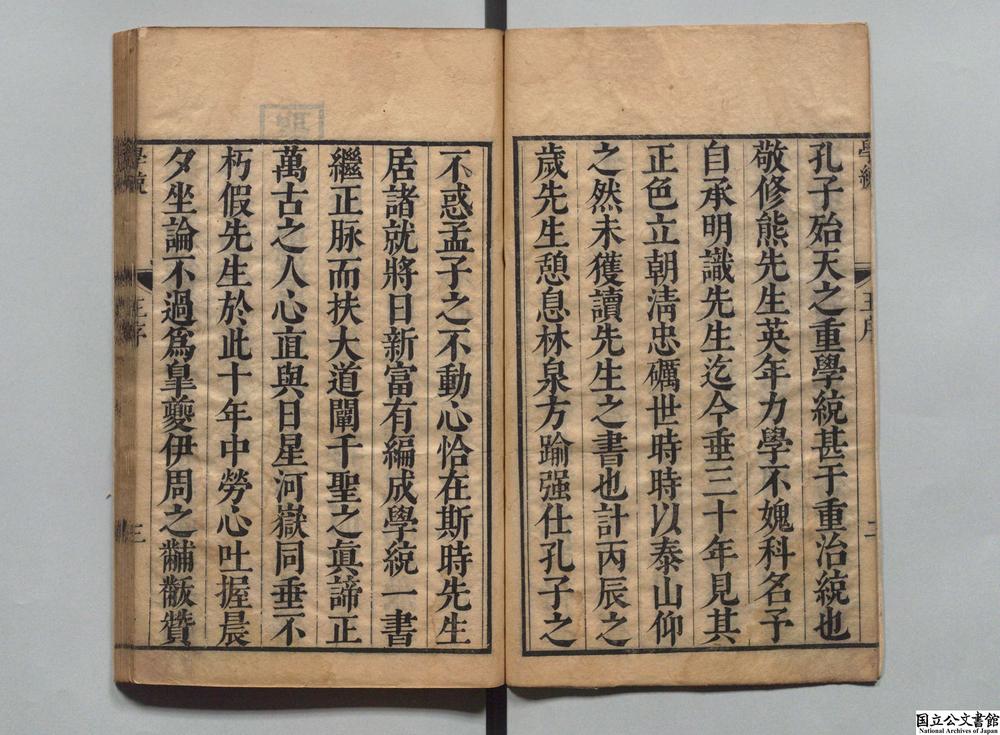 學統
王序
二
孔子始天之重學統甚于重治統也
敬修熊先生英年力學不媿科名予
自承明識先生迄今垂三十年見其
正色立朝淸忠礪世時時以泰山仰
之然未獲讀先生之書也計丙辰之
歲先生憩息林泉方踰强仕孔子之
不惑孟子之不動心恰在斯時先生
居諸就將日新富有編成學統一書
繼正脉而扶大道闡千聖之眞諦正
萬古之人心亙與日星河嶽同垂不
朽假先生於此十年中勞心吐握晨
夕坐論不過爲皇夔伊周之黼黻贊
學統
王序
三
国立公文書館
National Archives of Japan